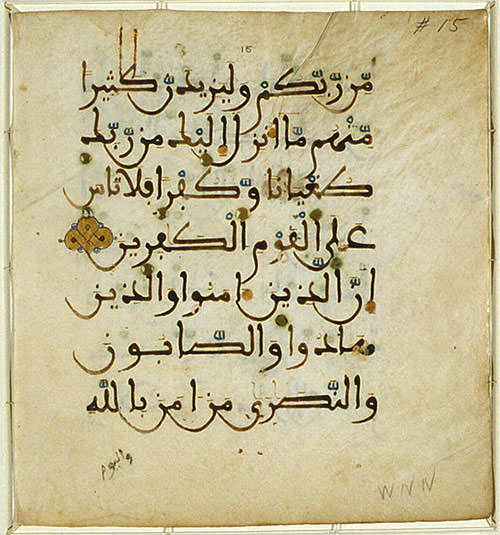 # 15
15
من ربكم وليزيدن كثيرا
منهم ما انزل اليك من ربك
طغيانا وكفرا فلا تاس
على القوم الكفرين
ان الذين امنوا والذين
هادوا والصابون
والنصرى من امن بالله
واليوم
WNN